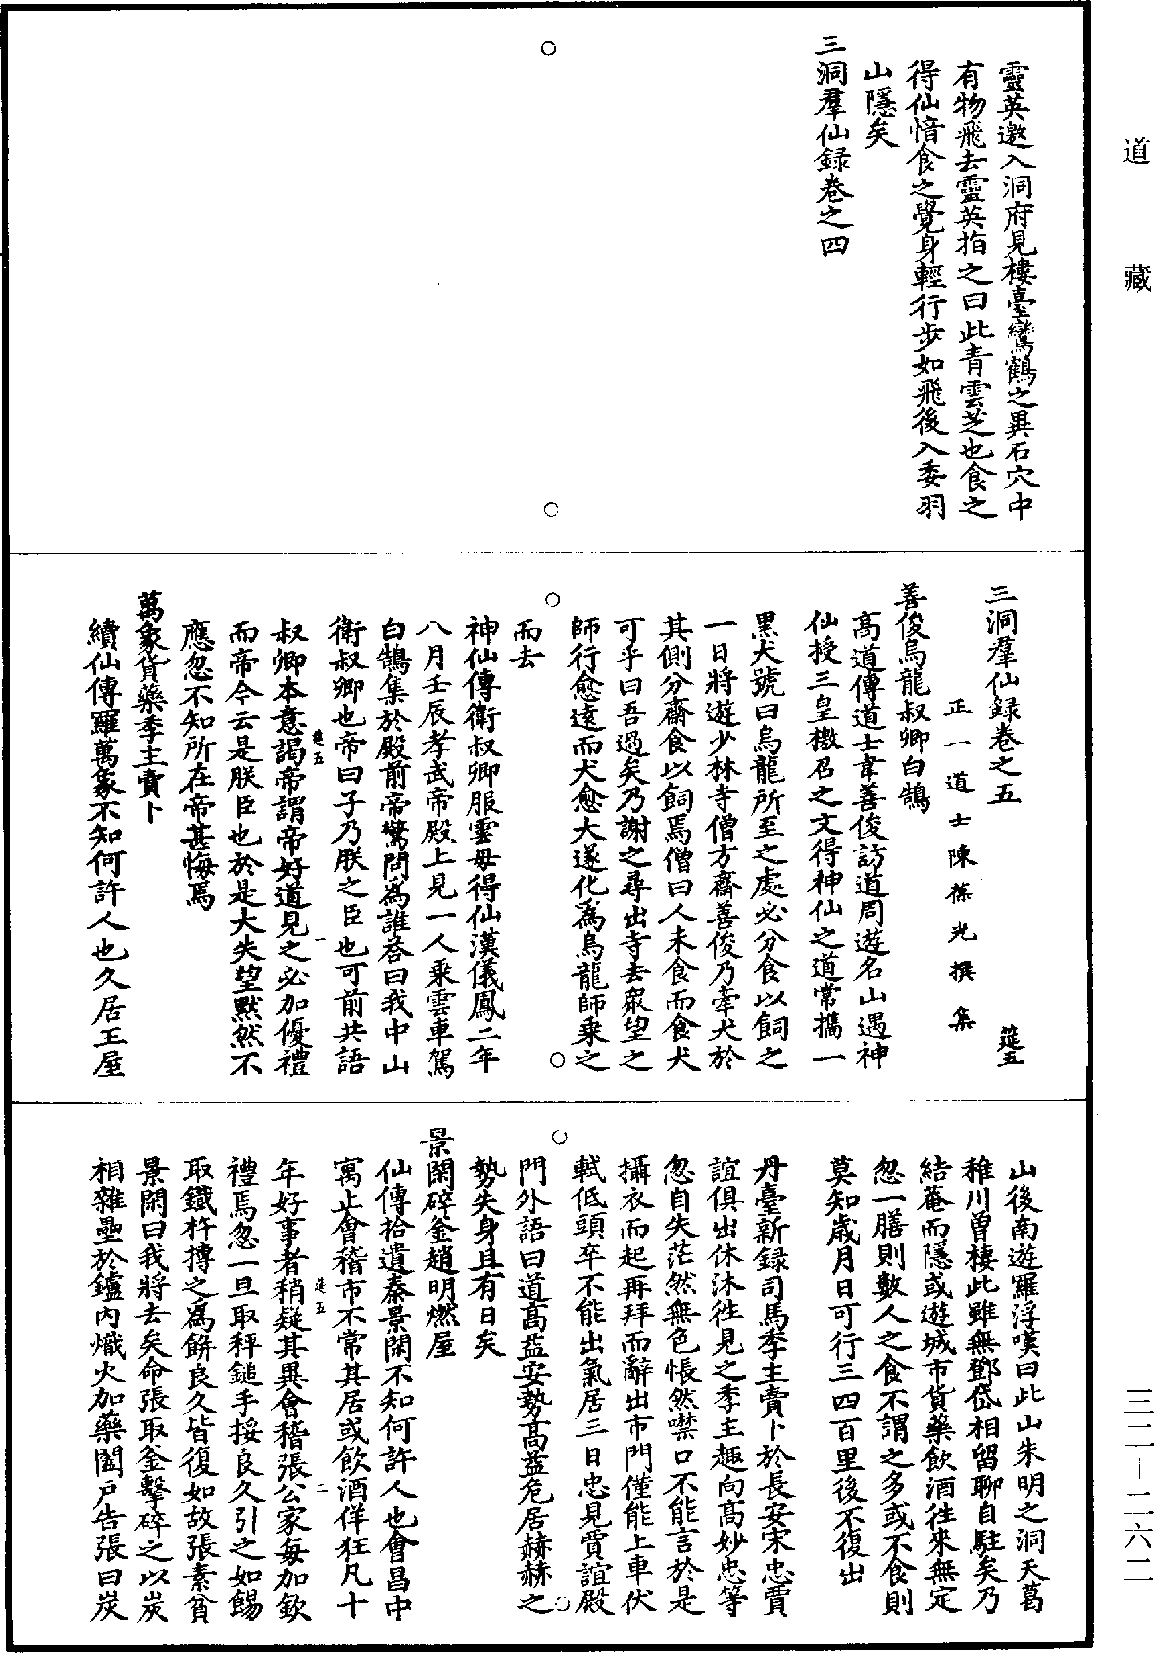 道藏
靈英邀入洞府見樓臺鸞鶴之異石穴中
有物飛去靈英指之曰此青雲芝也食之
得仙愔食之覺身輕行步如飛後入委羽
山隱矣
三洞羣仙録卷之四
三洞羣仙録卷之五
筵五
正一道士陳葆光撰集
善俊烏龍叔卿白鵠
高道傳道士韋善俊訪道周遊名山遇神
仙授三皇檄召之文得神仙之道常攜一
黑犬號曰烏龍所至之處必分食以飼之
一日將遊少林寺僧方齋善俊乃牽犬於
其側分齋食以飼焉僧曰人未食而食犬
可乎曰吾過矣乃謝之尋出寺去衆望之
師行愈遠而犬愈大遂化爲烏龍師乘之
而去
神仙傳衛叔卿服靈母得仙漢儀鳳二年
八月壬辰孝武帝殿上見一人乘雲車駕
白鵠集於殿前帝驚問爲誰答曰我中山
衛叔卿也帝曰子乃朕之臣也可前共語
筵五
一
叔卿本意謁帝謂帝好道見之必加優禮
而帝今云是朕臣也於是大失望黙然不
應忽不知所在帝甚悔焉
萬象貨藥季主賣卜
續仙傳羅萬象不知何許人也久居王屋
山後南遊羅浮嘆曰此山朱明之洞天葛
稚川曽棲此雖無鄧岱相留聊自駐矣乃
結菴而隱或遊城市貨藥飲酒徃來無定
忽一膳則數人之食不謂之多或不食則
莫知歳月日可行三四百里後不復出
丹臺新録司馬季主賣卜於長安宋忠賈
誼俱出休沐徃見之季主趣向高妙忠等
忽自失茫然無色悵然噤口不能言於是
攝衣而起再拜而辭出市門僅能上車伏
軾低頭卒不能出氣居三日忠見賈誼殿
門外語曰道高益安勢高益危居赫赫之
勢失身且有日矣
景閑碎釜趙明燃屋
仙傳拾遺秦景閑不知何許人也會昌中
寓止會稽市不常其居或飲酒佯狂凡十
筵五
二
年好事者稍疑其異會稽張公家每加欽
禮焉忽一旦取秤鎚手挼良久引之如餳
取鐵杵摶之爲餅良久皆復如故張素貧
景閑曰我將去矣命張取釜擊碎之以炭
相雜壘於鑪内熾火加藥闔戶告張曰炭
三二—二六二